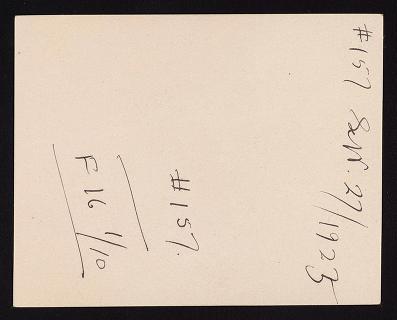 #157 Sept. 27/1923
#157.
F 16 1/10